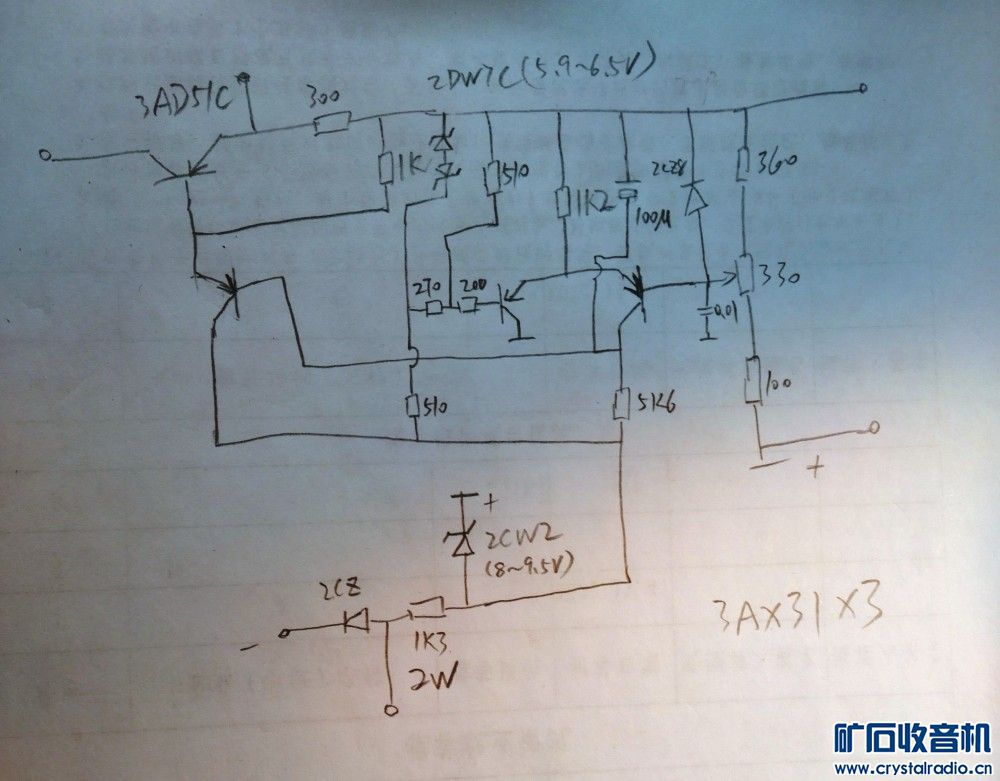 3AD51C
300
2DW7C(5.9~6.5V)
1K
510
1K2
100μ
2CZ8
360
270
200
330
0.01
510
5K6
100
+
+
2CW2
(8~9.5V)
2CZ
1K3
2W
-
3AX31×3
矿石收音机
www.crystalradio.cn